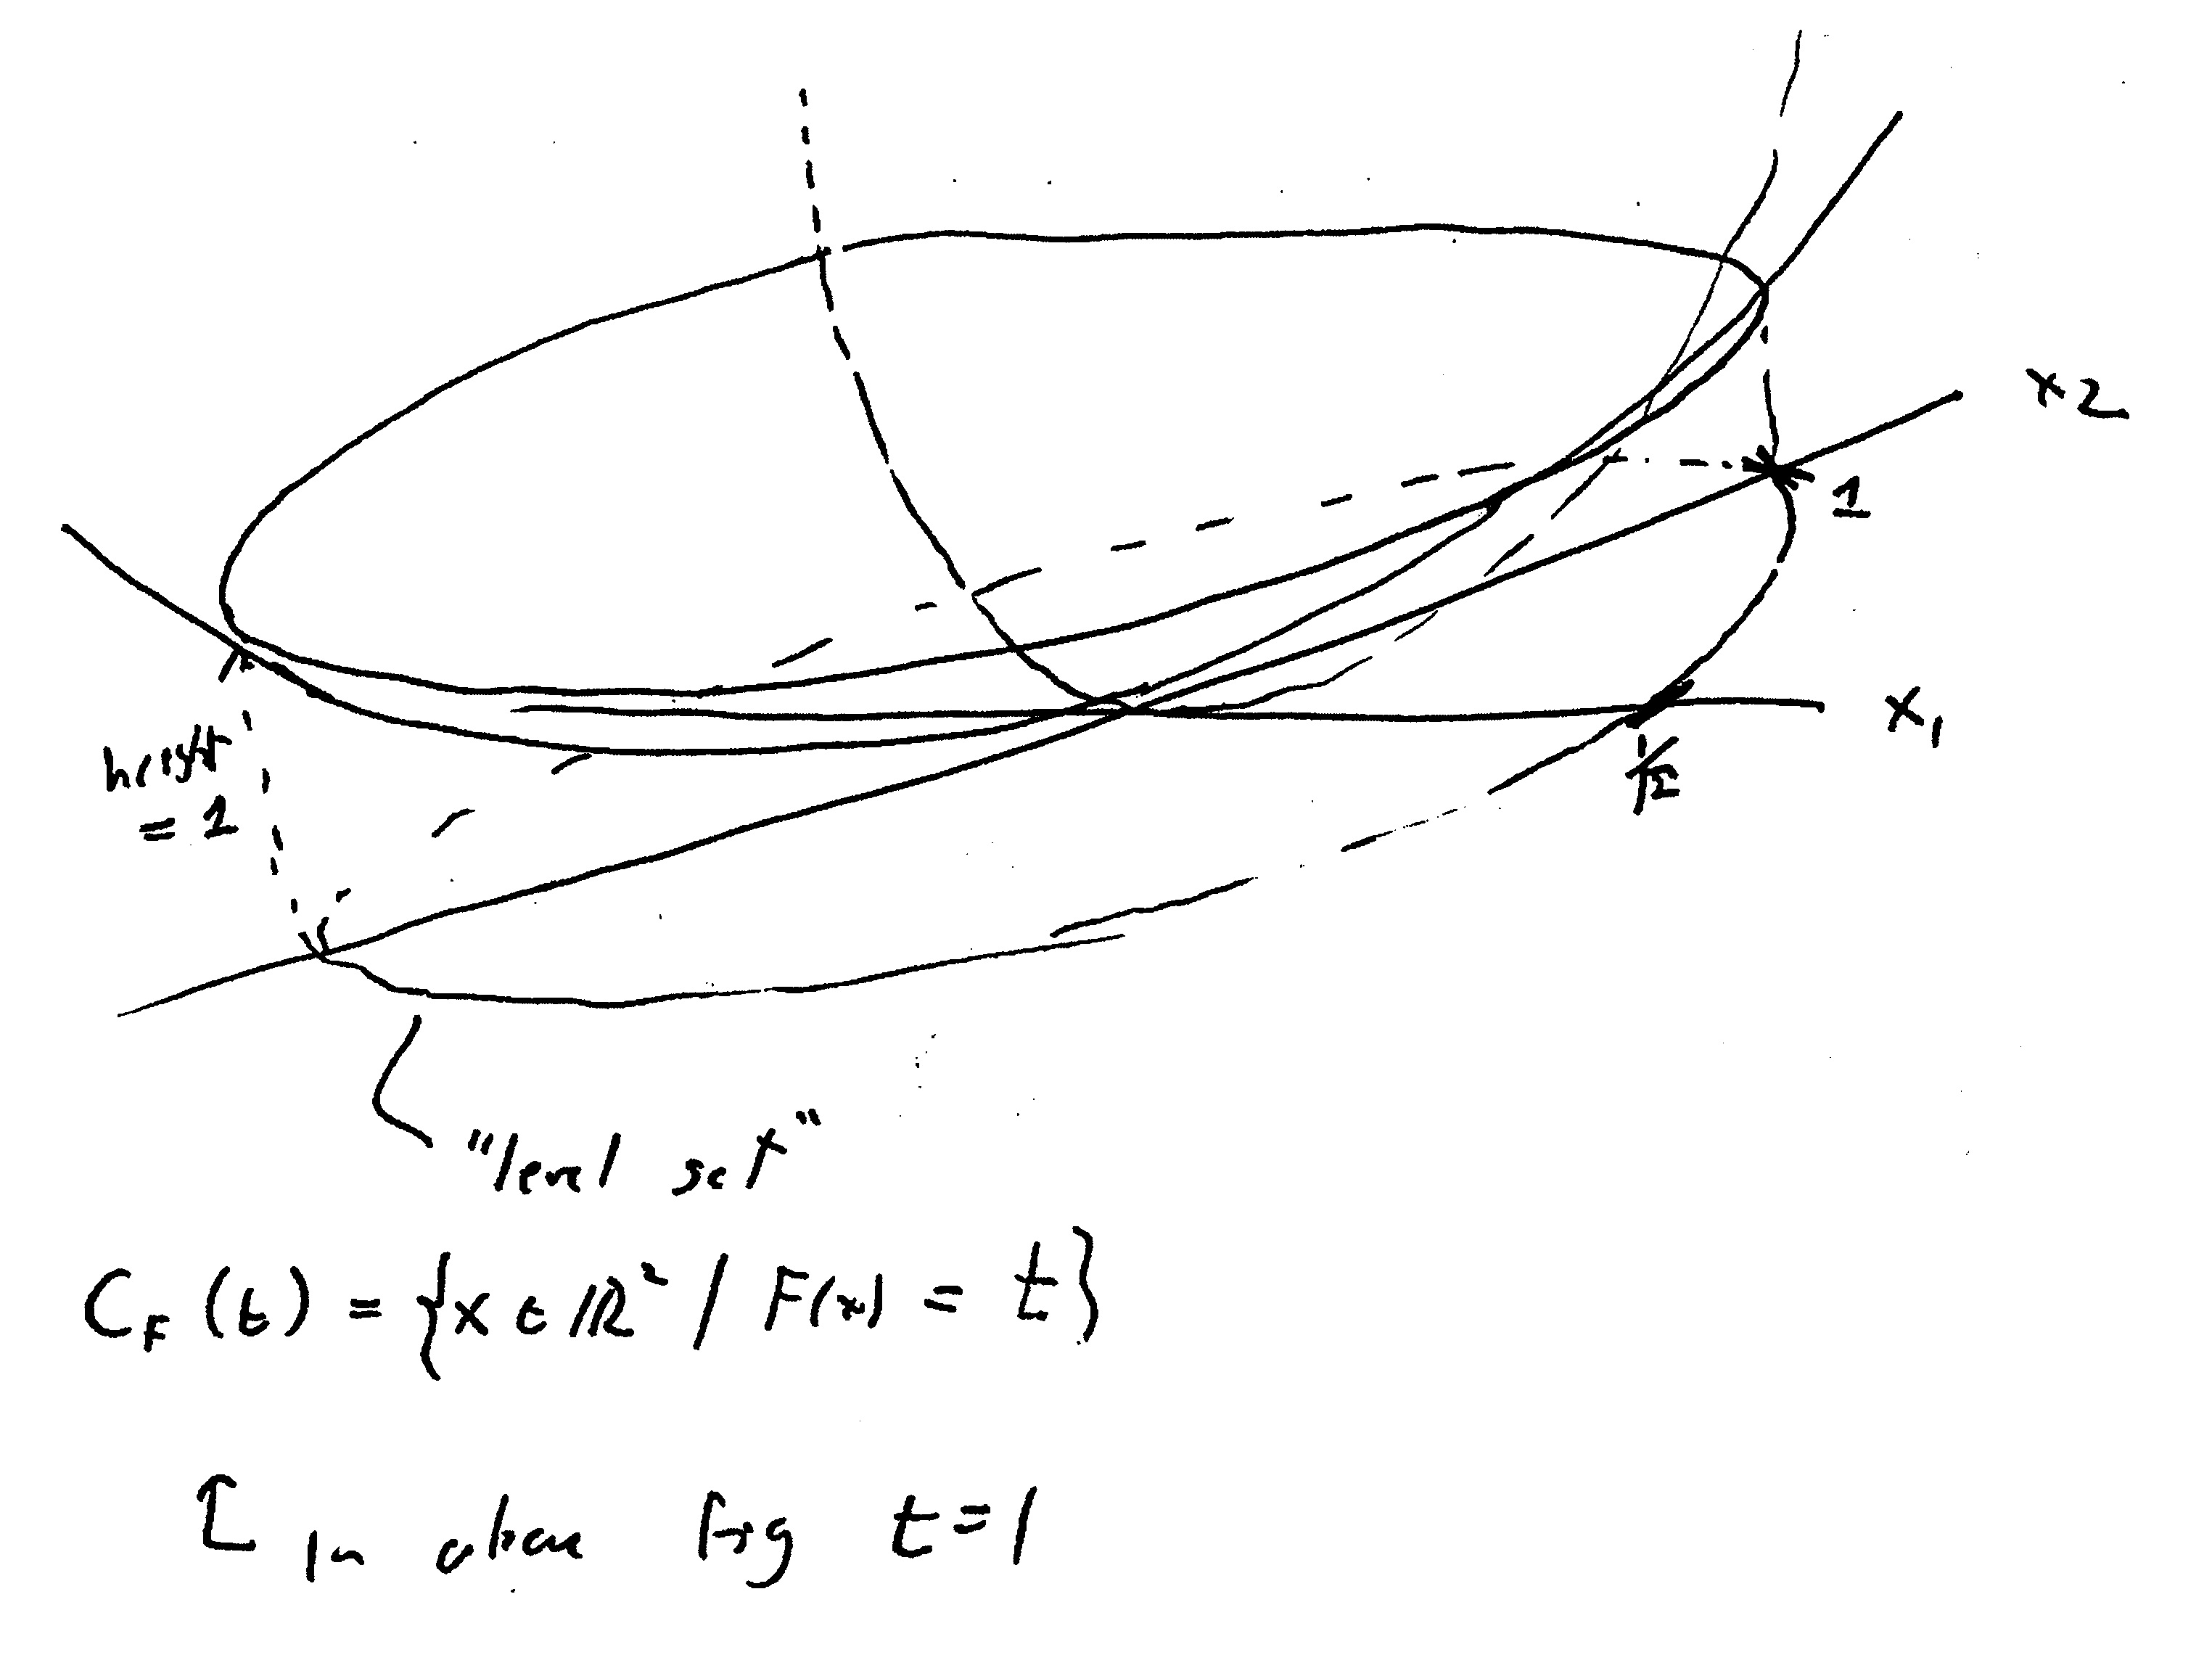 x2
1
x₁
1/√2
height
= 1
"level set"
C_F (t) = {x ∈ ℝ² / F(x) = t}
[ in above fig t=1